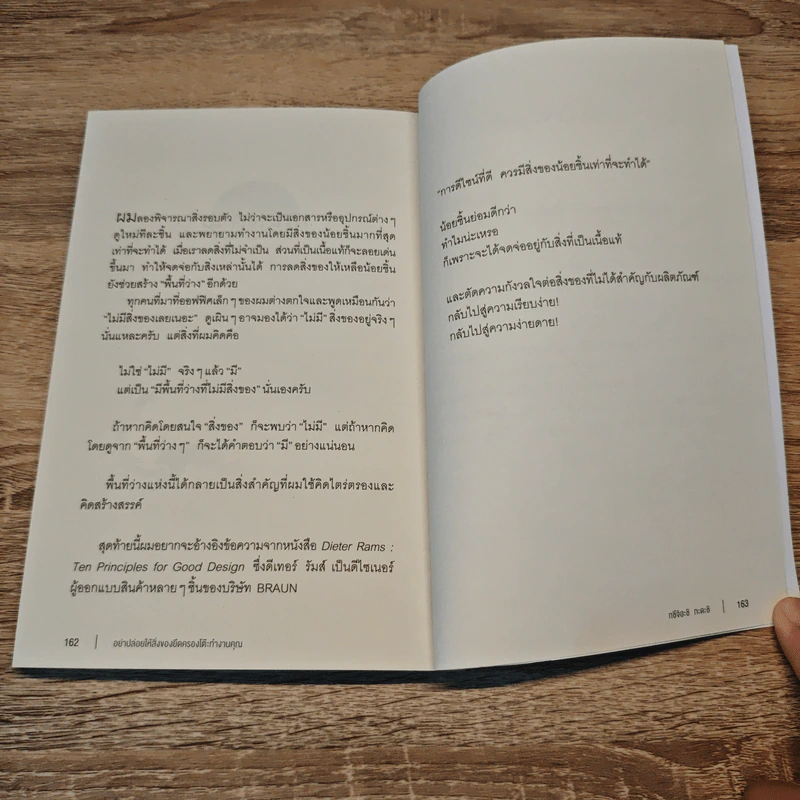 ผมลองพิจารณาสิ่งรอบตัว ไม่ว่าจะเป็นเอกสารหรืออุปกรณ์ต่างๆ
ดูใหม่ทีละชิ้น และพยายามทำงานโดยมีสิ่งของน้อยชิ้นมากที่สุด
เท่าที่จะทำได้ เมื่อเราลดสิ่งที่ไม่จำเป็น ส่วนที่เป็นเนื้อแท้ก็จะลอยเด่น
ขึ้นมา ทำให้จดจ่อกับสิ่งเหล่านั้นได้ การลดสิ่งของให้เหลือน้อยชิ้น
ยังช่วยสร้าง “พื้นที่ว่าง” อีกด้วย
ทุกคนที่มาที่ออฟฟิศเล็กๆ ของผมต่างตกใจและพูดเหมือนกันว่า
“ไม่มีสิ่งของเลยเนอะ” ดูเผินๆ อาจมองได้ว่า “ไม่มี” สิ่งของอยู่จริงๆ
นั่นแหละครับ แต่สิ่งที่ผมคิดคือ
ไม่ใช่ “ไม่มี” จริงๆ แล้ว “มี”
แต่เป็น “มีพื้นที่ว่างที่ไม่มีสิ่งของ” นั่นเองครับ
ถ้าหากคิดโดยสนใจ “สิ่งของ” ก็จะพบว่า “ไม่มี” แต่ถ้าหากคิด
โดยดูจาก “พื้นที่ว่างๆ” ก็จะได้คำตอบว่า “มี” อย่างแน่นอน
พื้นที่ว่างแห่งนี้ได้กลายเป็นสิ่งสำคัญที่ผมใช้คิดไตร่ตรองและ
คิดสร้างสรรค์
สุดท้ายนี้ผมอยากจะอ้างอิงข้อความจากหนังสือ Dieter Rams :
Ten Principles for Good Design ซึ่งดีเทอร์ รัมส์ เป็นดีไซเนอร์
ผู้ออกแบบสินค้าหลายๆ ชิ้นของบริษัท BRAUN
162 | อย่าปล่อยให้สิ่งของยึดครองโต๊ะทำงานคุณ
“การดีไซน์ที่ดี ควรมีสิ่งของน้อยชิ้นเท่าที่จะทำได้”
น้อยชิ้นย่อมดีกว่า
ทำไมน่ะเหรอ
ก็เพราะจะได้จดจ่ออยู่กับสิ่งที่เป็นเนื้อแท้
และตัดความกังวลใจต่อสิ่งของที่ไม่ได้สำคัญกับผลิตภัณฑ์
กลับไปสู่ความเรียบง่าย!
กลับไปสู่ความง่ายดาย!
ทะดะชิ | 163